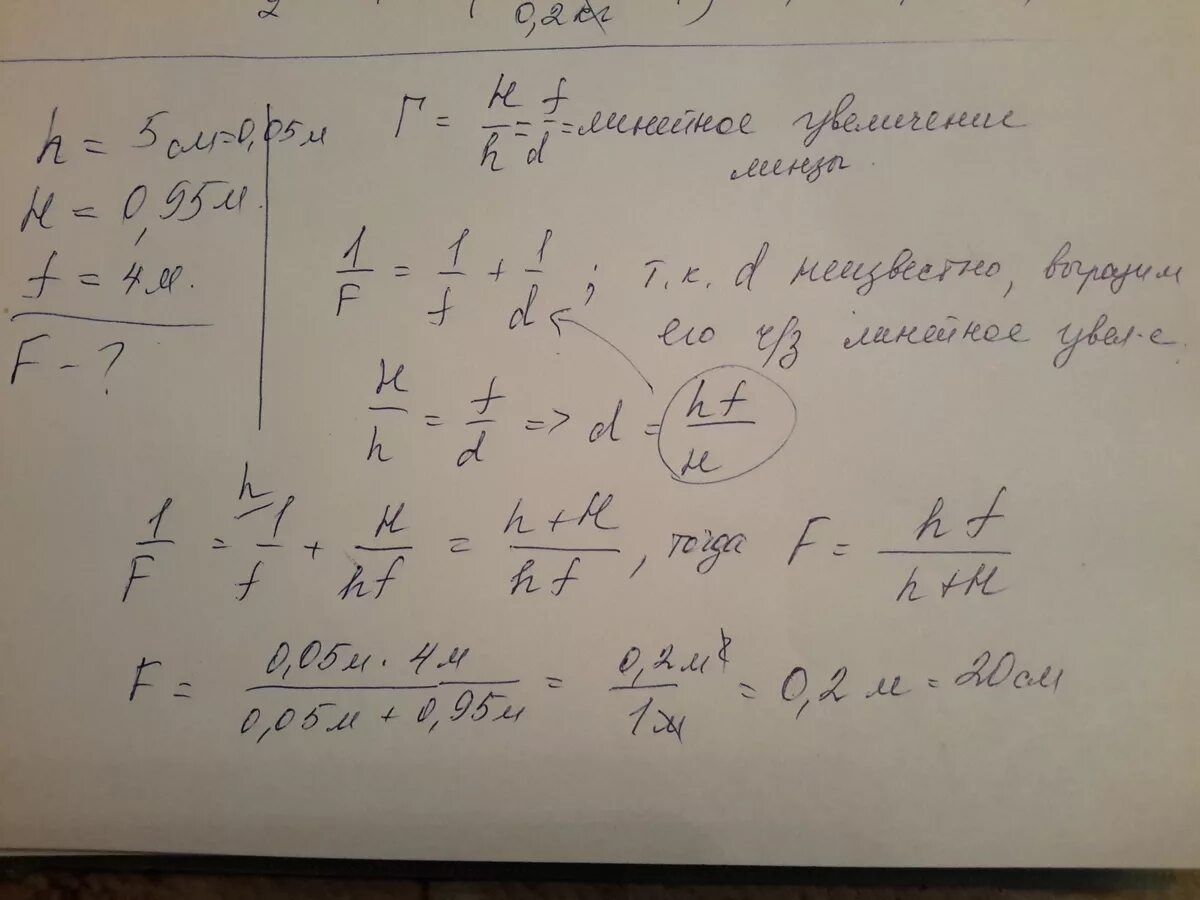 2 0,2кг
h = 5 см = 0,05 м
H = 0,95 м.
f = 4 м.
F - ?
Г = H/h = f/d = линейное увеличение
линзы.
1/F = 1/f + 1/d ; т.к. d неизвестно, выразим
его ч/з линейное увел-е.
H/h = f/d => d = hf/H
1/F = h 1/f + H/hf = h+H/hf , тогда F = hf/h+H
F = 0,05м · 4м / 0,05м + 0,95м = 0,2м²/1м = 0,2 м = 20 см